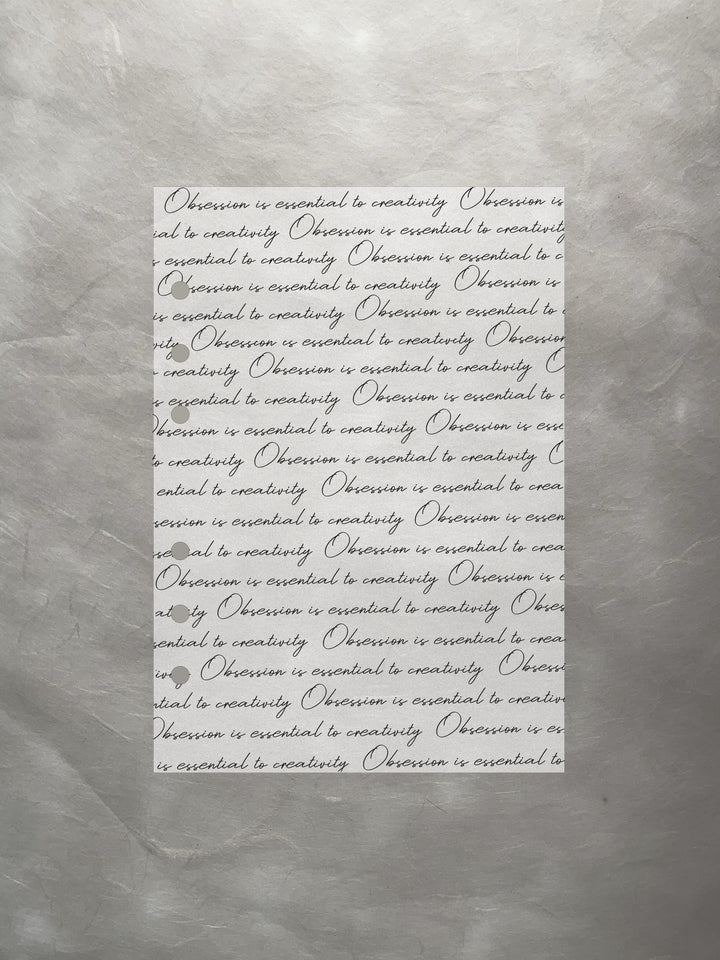 Obsession is essential to creativity Obsession is
ial to creativity Obsession is essential to creativity
s essential to creativity Obsession is essential to c
Obsession is essential to creativity Obsession is
is essential to creativity Obsession is essential to
vity Obsession is essential to creativity Obsession
creativity Obsession is essential to creativity O
s essential to creativity Obsession is essential to
Obsession is essential to creativity Obsession is esse
to creativity Obsession is essential to creativity O
ential to creativity Obsession is essential to crea
session is essential to creativity Obsession is essen
essential to creativity Obsession is essential to crea
Obsession is essential to creativity Obsession is e
ativity Obsession is essential to creativity Obses
sential to creativity Obsession is essential to crea
ivity Obsession is essential to creativity Obsessi
ntial to creativity Obsession is essential to creativi
Obsession is essential to creativity Obsession is es
is essential to creativity Obsession is essential to